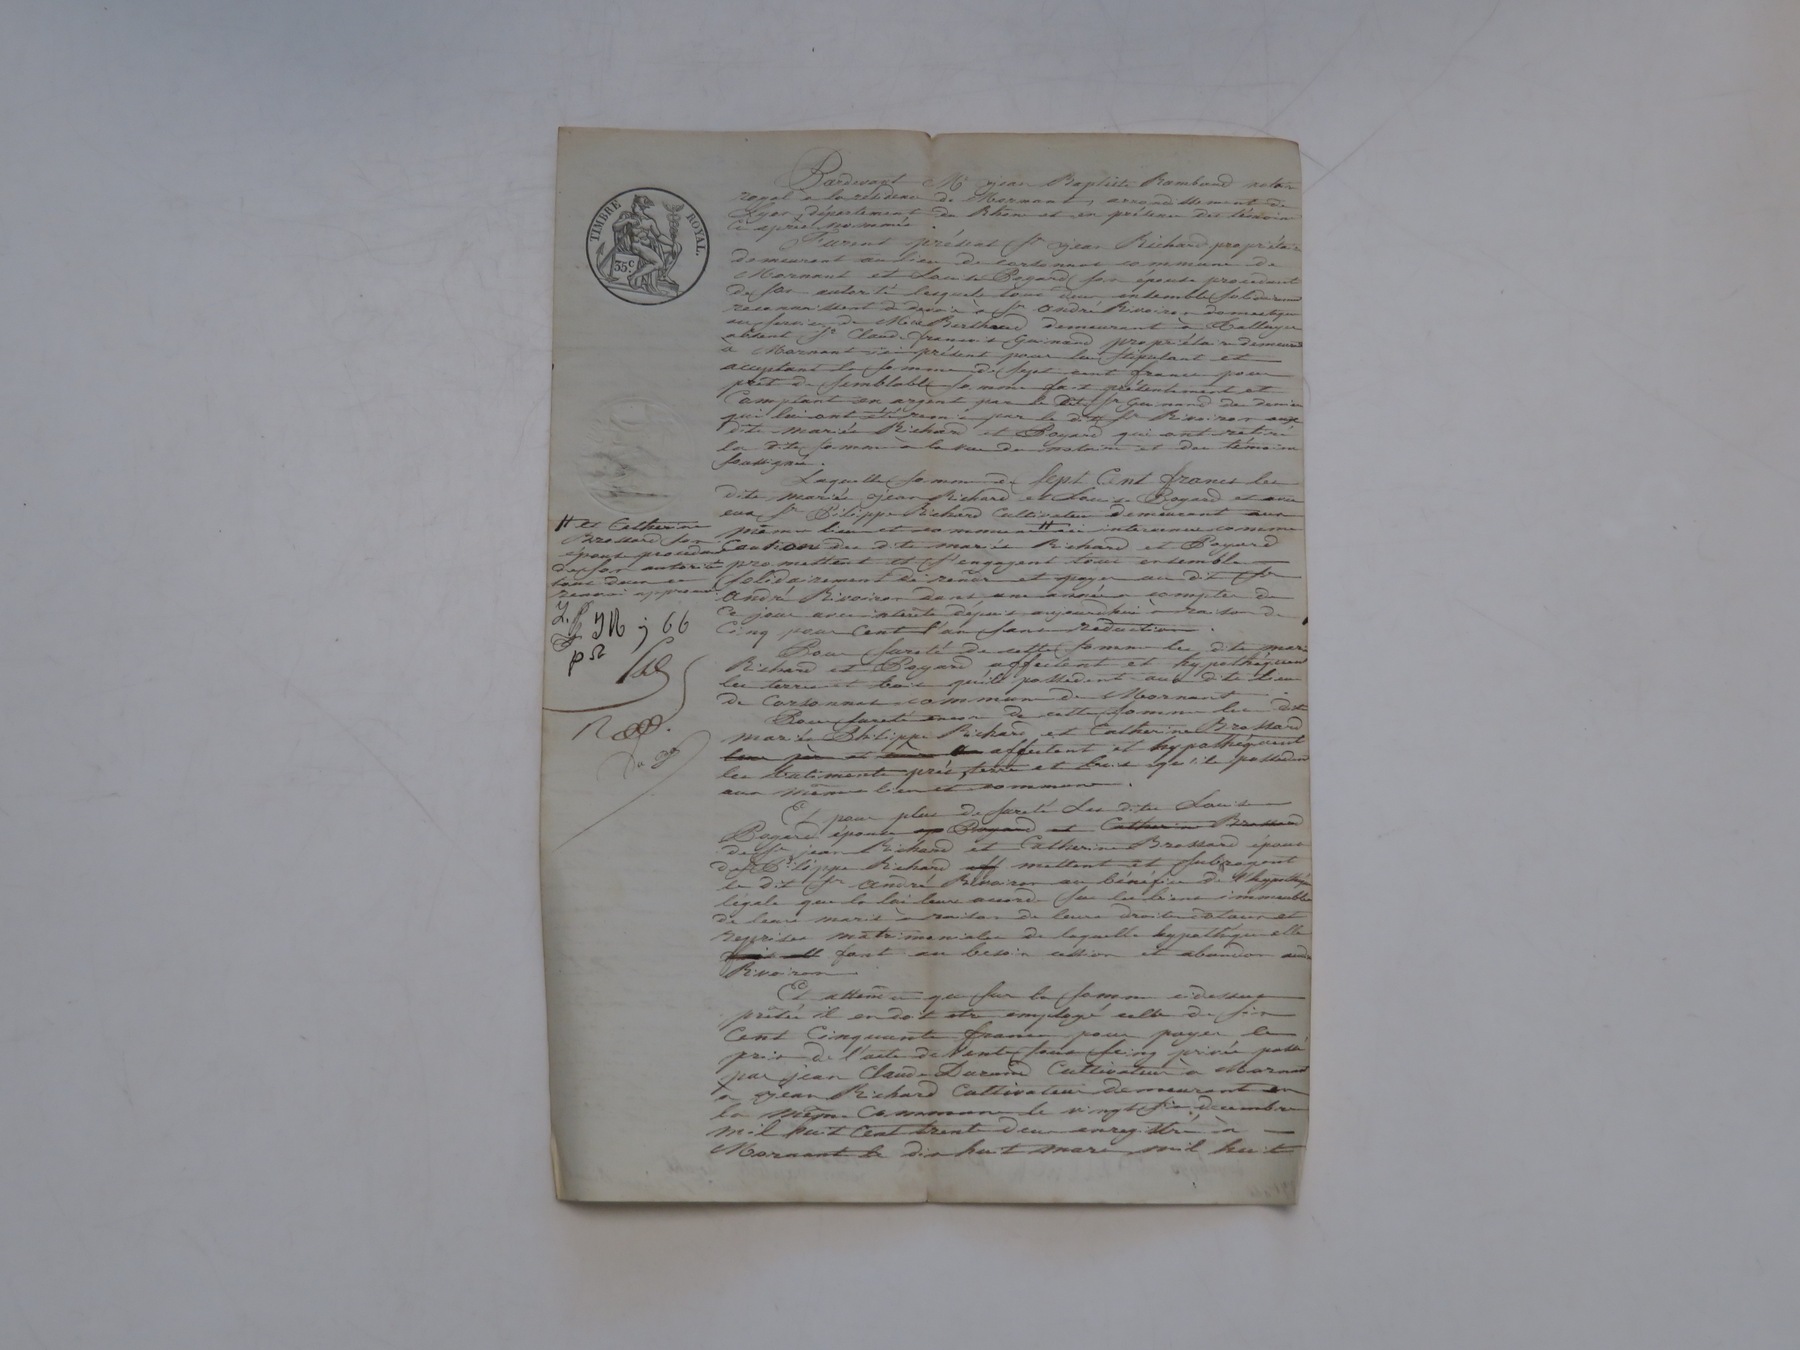 TIMBRE ROYAL.
35c
Pardevant Me jean Baptiste Rambaud notaire
royal a la résidence de Mornant, arrondissement de
Lyon, département du Rhône et en présence des témoins
ci après nommés.
Furent présent Sr jean Richard propriétaire
demeurant au lieu de corsonnat commune de
Mornant et Louise Poyard son épouse procédant
de son autorité lesquels tous deux ensemble solidairement
reconnaissent devoir à Sr André Rivoiron domestique
au service de Mr Berthaud demeurant à
absent Sr Claude françois Guinand propriétaire demeurant
à Mornant ici présent pour lui stipulant et
acceptant la somme de sept cent francs pour
prêt de semblable somme fait présentement et
Comptant en argent par le dit Sr Guinand de denier
qui lui ont été remis par le dit Sr Rivoiron aux
dits mariés Richard et Poyard qui ont retiré
la dite somme à la vue du notaire et des témoins
soussignés.
Laquelle somme de sept Cent francs les
dits mariés jean Richard et Louise Poyard et avec
eux Sr Philippe Richard Cultivateur demeurant aux
même lieu et commune # ici intervenus comme
Cautions des dits mariés Richard et Poyard
promettent et s'engagent tous ensemble
solidairement de rendre et payer au dit Sr
André Rivoiron dans une année a compter de
ce jour avec intérêts depuis aujourd'hui à raison de
Cinq pour Cent l'an sans reduction.
# et Catherine
Brossard son
épouse procédant
de son autorité
tous deux ce
renvoi approuvé
Pour sureté de cette somme les dits mariés
Richard et Poyard affectent et hypothéquent
les terres et bois qu'ils possedent aux dits lieu
de Corsonnat commune de Mornant
Pour sureté encore de cette somme les dits
mariés Philippe Richard et Catherine Brossard
affectent et hypothéquent
les batiments prés, terre et bois qu'ils possedent
aux même lieu et commune.
Et pour plus de sureté Les dites Louise
Poyard épouse Poyard et Catherine Brossard
de Sr jean Richard et Catherine Brossard épouse
de Sr Philippe Richard mettent et subrogent
le dit Sr André Rivoiron au bénéfice de l'hypothèque
légale que la loi leur accorde sur les biens immeubles
de leurs maris à raison de leurs droits dotaux et
Reprises matrimoniales de laquelle hypothèque elle
font au besoin cession et abandon audit
Rivoiron
Et attendu que sur la somme cidessus
prêtée il en doit etre employé celle de six
Cent Cinquante francs pour payer le
prix de l'acte de vente sous seing privée passé
par jean Claude Durand Cultivateur à Mornant
a jean Richard Cultivateur demeurant en
la même Commune le vingt six decembre
mil huit Cent trente deux enregistré à
Mornant le dix huit mars mil huit